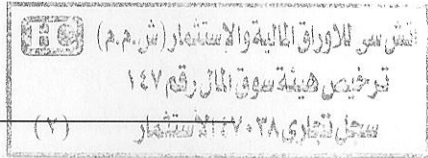 اتش سى للاوراق المالية والاستثمار (ش.م.م)
ترخيص هيئة سوق المال رقم ١٤٧
سجل تجارى ٤٧٠٣٨ الاستثمار (٢)